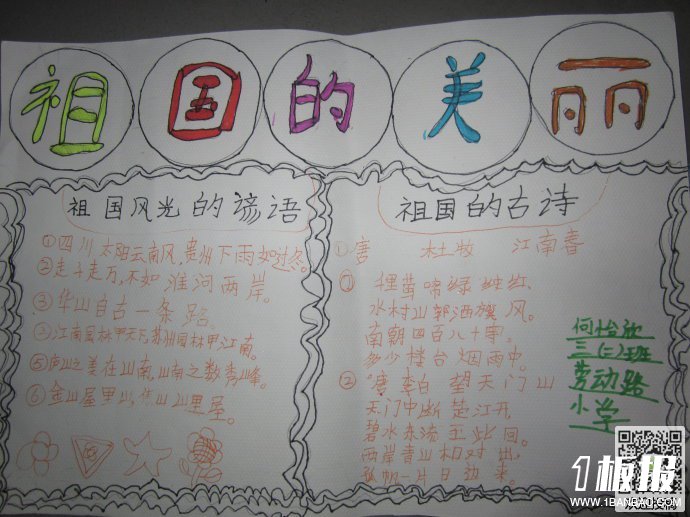 祖国的美丽
祖国风光的谚语
①四川太阳云南风,贵州下雨如过冬。
②走千走万,不如淮河两岸。
③华山自古一条路。
④江南园林甲天下,苏州园林甲江南。
⑤庐山之美在山南,山南之数秀峰。
⑥金山屋里山,焦山山里屋。
祖国的古诗
①唐 杜牧 江南春
①狸莺啼绿 红,
水村山郭酒旗风。
南朝四百八十寺。
多少楼台烟雨中。
②唐 李白 望天门山
天门中断楚江开,
碧水东流至此回。
两岸青山相对出,
孤帆一片日边来。
何怡欣
三(二)班
劳动路
小学
1板报
WWW.1BANBAO.COM